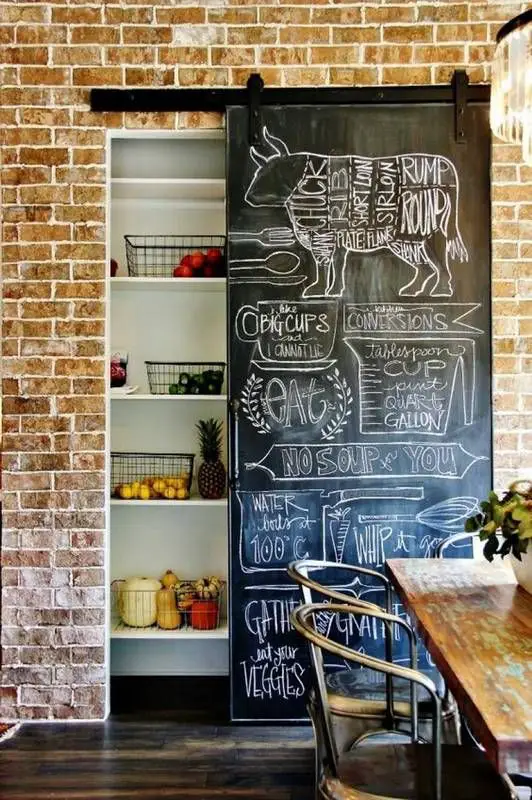 CHUCK
RIB
SHORT LOIN
SIRLOIN
RUMP
ROUND
PLATE
FLANK
SHANK
i like
BIG CUPS
and
I CANNOT LIE
kitchen
CONVERSIONS
tablespoon
CUP
pint
QUART
GALLON
eat
NO SOUP for YOU
WATER
boils at
100°C
WHIP it good
GATHER
eat your
VEGGIES